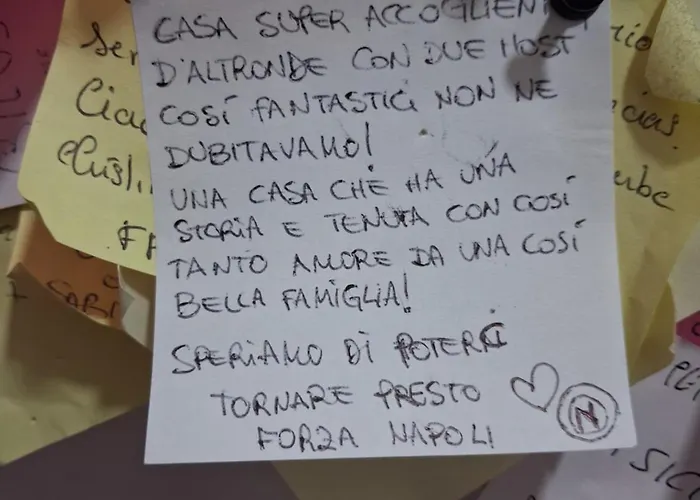 CASA SUPER ACCOGLIEN
D'ALTRONDE CON DUE HOST
COSÍ FANTASTICI NON NE
DUBITAVAMO!
UNA CASA CHE HA UNA
STORIA E TENUTA CON COSÍ
TANTO AMORE DA UNA COSÍ
BELLA FAMIGLIA!
SPERIAMO DI POTERCI
TORNARE PRESTO
FORZA NAPOLI
N
Ser
Ciao
cias.
ube
SABI
SIC